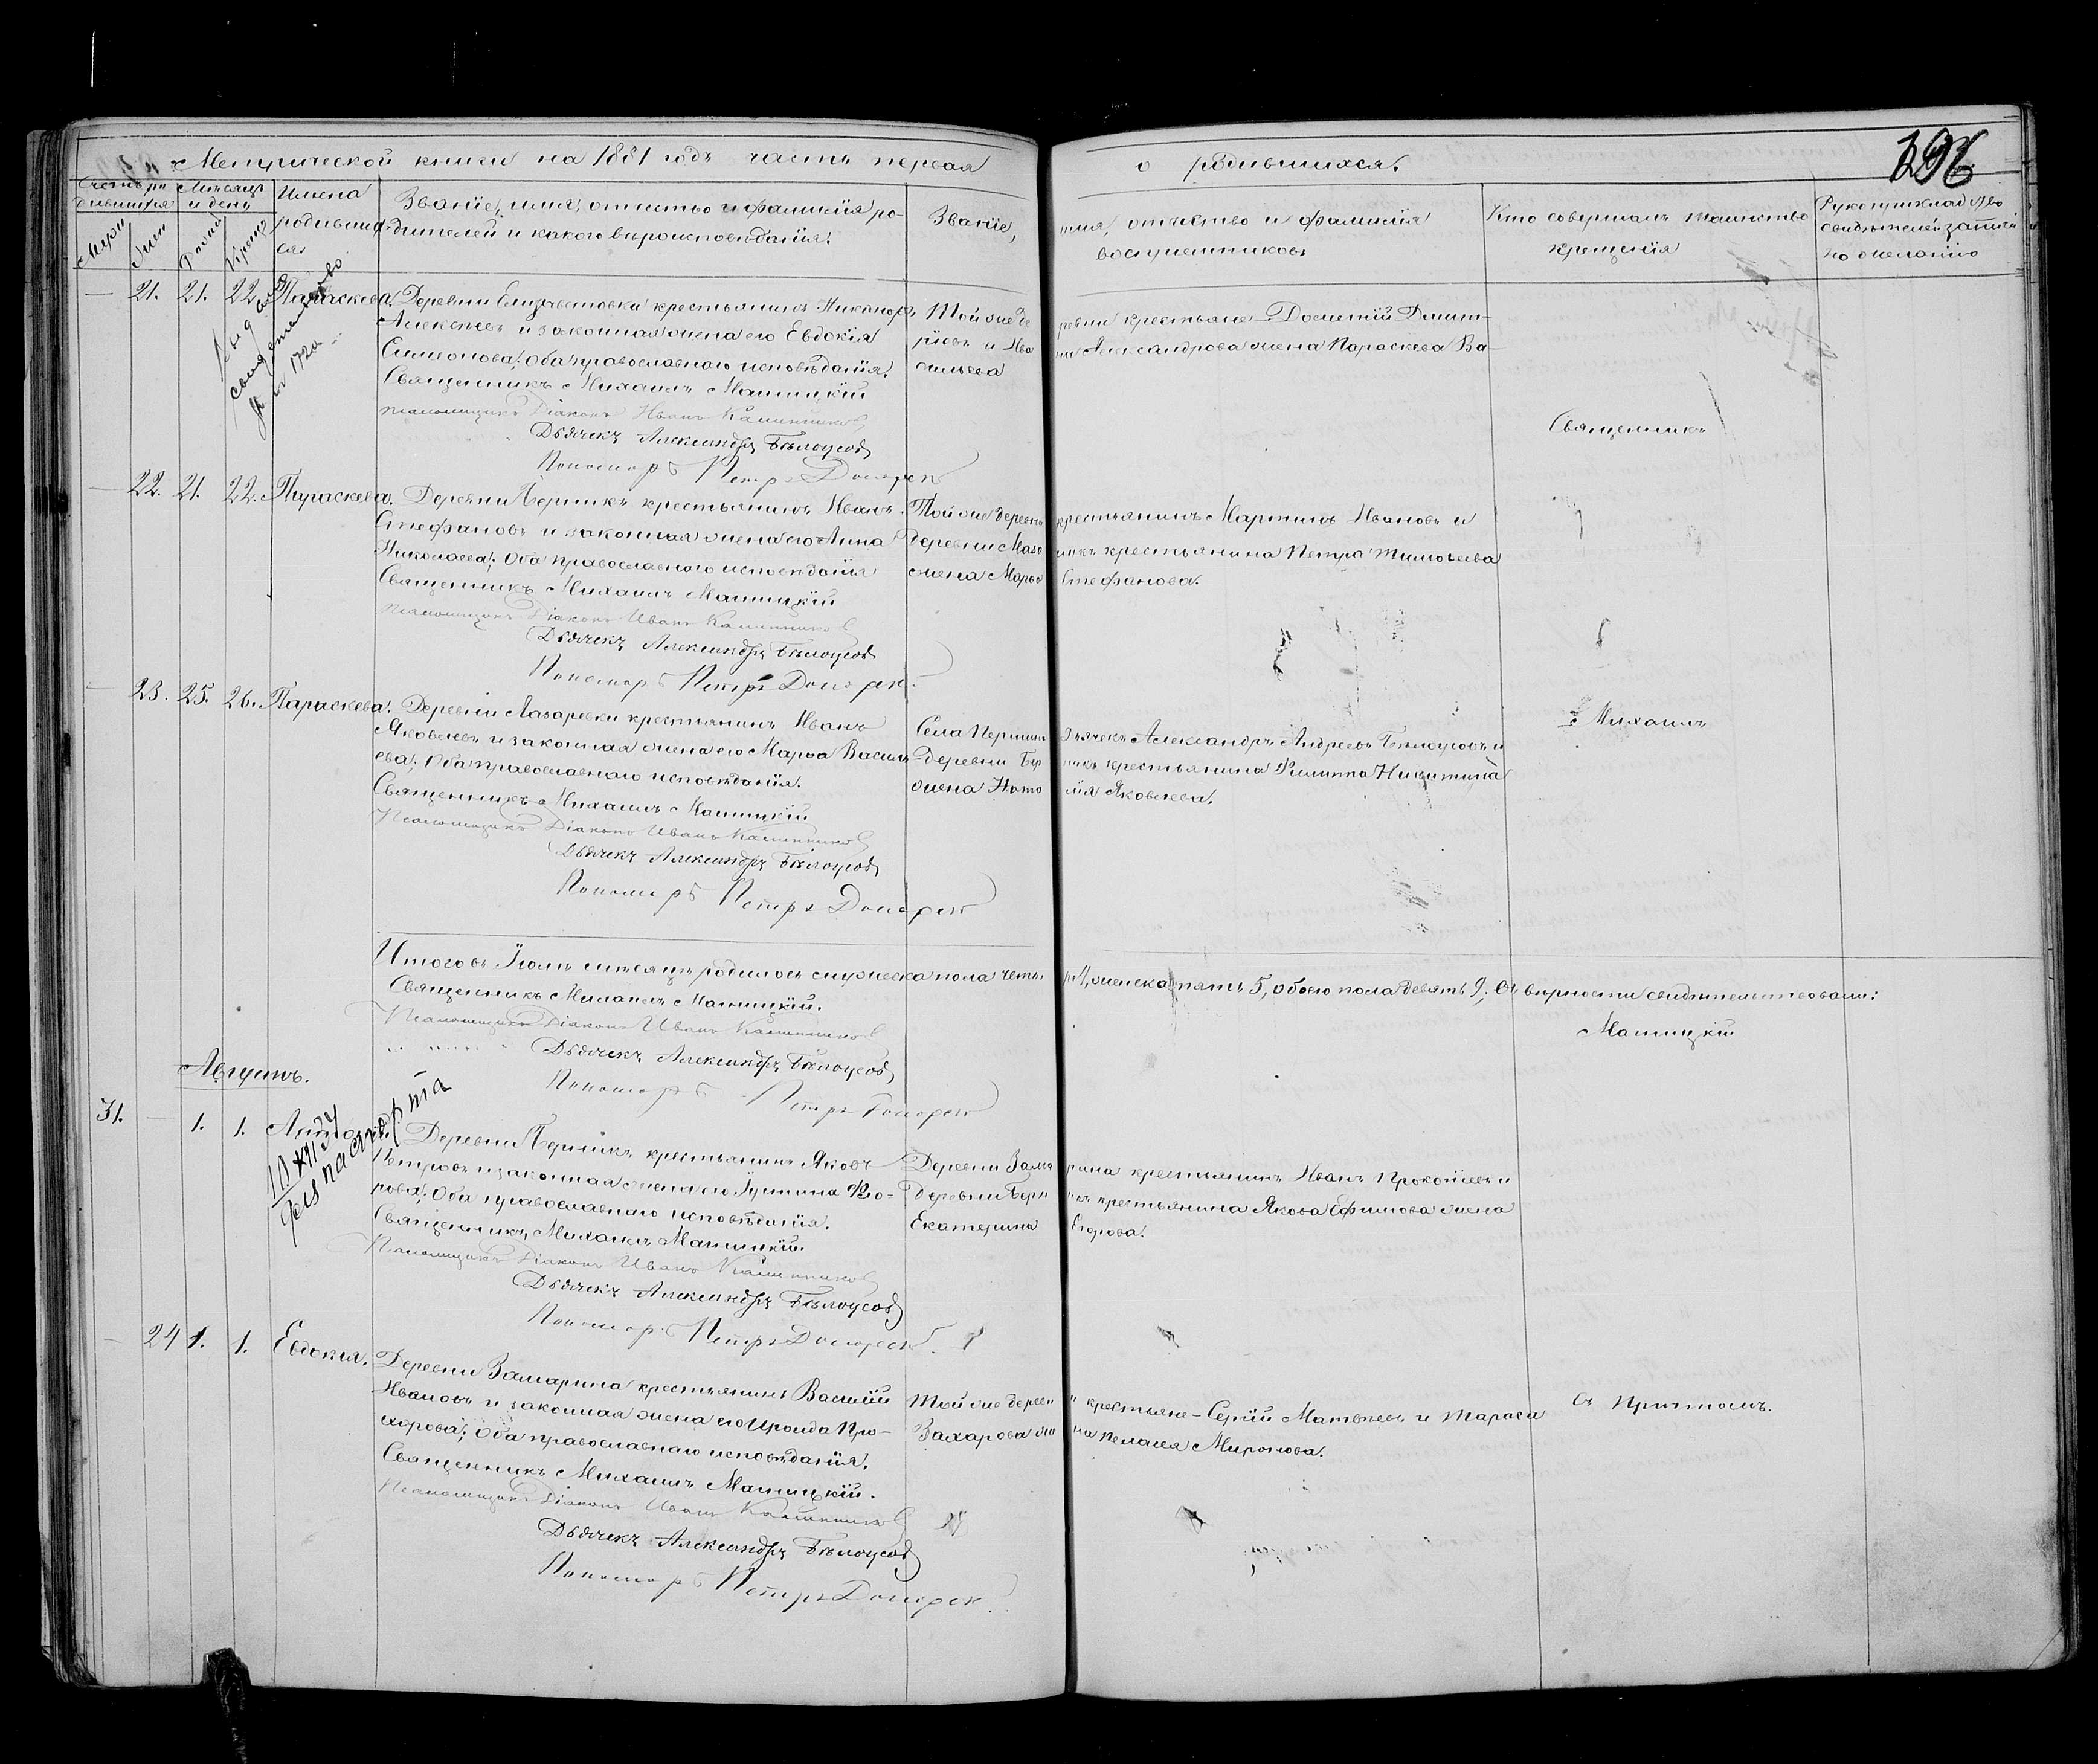 Метрической книги на 1881 годъ часть первая о родившихся.
Счетъ родившихся
Мѣсяцъ и день
Имена родившихся.
Званіе, имя, отчество и фамилія родителей и какого вѣроисповѣданія.
Званіе, имя, отчество и фамилія воспріемниковъ
Кто совершалъ таинство крещенія
Рукоприкладство свидѣтелей записи по желанію
— 21. 21. 22. Параскева.
Деревни Елизаветовки крестьянинъ Никаноръ
Алексѣевъ и законная жена его Евдокія
Симеонова; Оба православнаго исповѣданія.
Священникъ Михаилъ Матицкій
Псаломщикъ Діаконъ Иванъ Калинниковъ
Дьячекъ Александръ Бѣлоусовъ
Пономарь Петръ
Той же деревни крестьяне — Досиѳій Дмит-
ріевъ и Ивана Александрова жена Параскева Ва-
сильева
Священникъ
— 22. 21. 22. Параскева.
Деревни крестьянинъ Иванъ
Стефановъ и законная жена его Анна
Николаева; Оба православнаго исповѣданія
Священникъ Михаилъ Матицкій
Псаломщикъ Діаконъ Иванъ Калинниковъ
Дьячекъ Александръ Бѣлоусовъ
Пономарь Петръ
Той же деревни крестьянинъ Мартинъ Ивановъ и
деревни крестьянина Петра Тимоѳеева
жена Марѳа Стефанова.
— 23. 25. 26. Параскева.
Деревни Лазаревки крестьянинъ Иванъ
Яковлевъ и законная жена его Марѳа Василь-
ева; Оба православнаго исповѣданія.
Священникъ Михаилъ Матицкій
Псаломщикъ Діаконъ Иванъ Калинниковъ
Дьячекъ Александръ Бѣлоусовъ
Пономарь Петръ
Села дьячекъ Александръ Андреевъ Бѣлоусовъ и
деревни крестьянина Филиппа Никитина
жена Наталія Яковлева.
Михаилъ
Итого въ Іюлѣ мѣсяцѣ родилось мужеска пола четыре 4, женска пять 5, обоего пола девять 9; Въ вѣрности свидѣтельствовали:
Священникъ Михаилъ Матицкій.
Псаломщикъ Діаконъ Иванъ Калинниковъ
Дьячекъ Александръ Бѣлоусовъ
Пономарь Петръ
Матицкій
Августъ.
31. — 1. 1.
Деревни крестьянинъ Яковъ
Петровъ и законная жена его Іустина Ѳео-
Оба православнаго исповѣданія.
Священникъ Михаилъ Матицкій.
Псаломщикъ Діаконъ Иванъ Калинниковъ
Дьячекъ Александръ Бѣлоусовъ
Пономарь Петръ
Деревни Замарина крестьянинъ Иванъ Прокопіевъ и
деревни крестьянина Якова Ефимова жена
Екатерина Егорова.
— 24 1. 1. Евдокія.
Деревни Замарина крестьянинъ Василій
Ивановъ и законная жена его Ироида Про-
хорова; Оба православнаго исповѣданія.
Священникъ Михаилъ Матицкій.
Псаломщикъ Діаконъ Иванъ Калинниковъ
Дьячекъ Александръ Бѣлоусовъ
Пономарь Петръ
Той же деревни крестьяне — Сергій Матвѣевъ и Тараса
Захарова жена Пелагія Миронова.
Съ причтомъ.